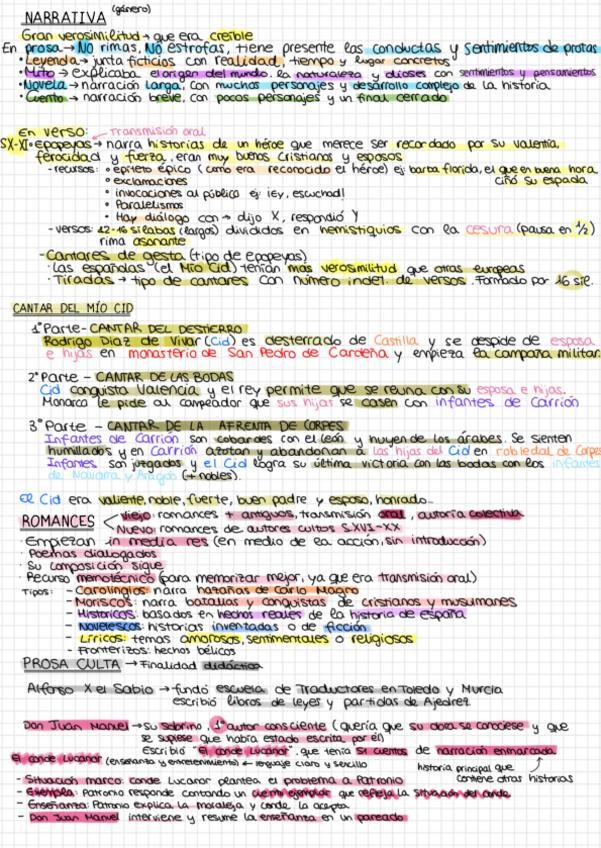 NARRATIVA (género)
Gran verosimilitud → que era creíble
En prosa → NO rimas, NO estrofas, tiene presente las conductas y sentimientos de protas
• Leyenda → junta ficticios con realidad, tiempo y lugar concretos
• Mito → explicaba el origen del mundo, la naturaleza y dioses con sentimientos y pensamientos
• Novela → narración larga, con muchos personajes y desarrollo complejo de la historia
• Cuento → narración breve, con pocos personajes y un final cerrado
En verso: → transmisión oral
SX-XI • Epopeyas → narra historias de un héroe que merece ser recordado por su valentía,
ferocidad y fuerza, eran muy buenos cristianos y esposos
- recursos: • epíteto épico (como era reconocido el héroe) ej: barba florida, el que en buena hora
ciñó su espada
• exclamaciones
• invocaciones al público ej: ¡ey, escuchad!
• Paralelismos
• Hay diálogo con → dijo X, respondió Y
- versos: 12-16 sílabas (largos) divididos en hemistiquios con la cesura (pausa en 1/2)
rima asonante
- Cantares de gesta (tipo de epopeyas)
• Las españolas (el Mío Cid) tenían más verosimilitud que otras europeas
• Tiradas → tipo de cantares con número indef. de versos. Formado por 16 síl.
CANTAR DEL MÍO CID
1ª Parte - CANTAR DEL DESTIERRO
Rodrigo Díaz de Vivar (Cid) es desterrado de Castilla y se despide de esposa
e hijas en monasterio de San Pedro de Cardeña y empieza la campaña militar.
2ª Parte - CANTAR DE LAS BODAS
Cid conquista Valencia y el rey permite que se reuna con su esposa e hijas.
Monarca le pide al campeador que sus hijas se casen con infantes de Carrión
3ª Parte - CANTAR DE LA AFRENTA DE CORPES
Infantes de Carrión son cobardes con el león y huyen de los árabes. Se sienten
humillados y en Carrión azotan y abandonan a las hijas del Cid en robledal de Corpes
Infantes son juzgados y el Cid logra su última victoria con las bodas con los infantes
de Navarra y Aragón (+ nobles).
El Cid era valiente, noble, fuerte, buen padre y esposo, honrado...
ROMANCES
Viejo: romances + antiguos, transmisión oral, autoría colectiva
Nuevo: romances de autores cultos S.XVI-XX
• Empiezan in media res (en medio de la acción, sin introducción)
• Poemas dialogados
• Su composición sigue
• Recurso memotécnico (para memorizar mejor, ya que era transmisión oral)
Tipos: - Carolingios: narra hazañas de Carlo Magno
- Moriscos: narra batallas y conquistas de cristianos y musulmanes
- Históricos: basados en hechos reales de la historia de España
- Novelescos: historias inventadas o de ficción
- Líricos: temas amorosos, sentimentales o religiosos
- Fronterizos: hechos bélicos
PROSA CULTA → Finalidad didáctica
Alfonso X el Sabio → fundó escuela de Traductores en Toledo y Murcia
escribió libros de leyes y partidas de Ajedrez
Don Juan Manuel → su sobrino, 1º autor consciente (quería que su obra se conociese y que
se supiese que había estado escrita por él)
Escribió "El conde Lucanor", que tenía 51 cuentos de narración enmarcada
El conde Lucanor (enseñanza y entretenimiento) ← lenguaje claro y sencillo
historia principal que
contiene otras historias
- Situación marco: conde Lucanor plantea el problema a Patronio
- Ejemplo: Patronio responde contando un cuento ejemplar que refleja la situación del conde
- Enseñanza: Patronio explica la moraleja y conde la acepta
- Don Juan Manuel interviene y resume la enseñanza en un pareado